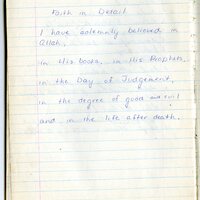 Faith in Detail
I have solemnly believed in
Allah,
in His books, in His Prophets,
in the Day of Judgement,
in the degree of good and evil
and in the life after death.